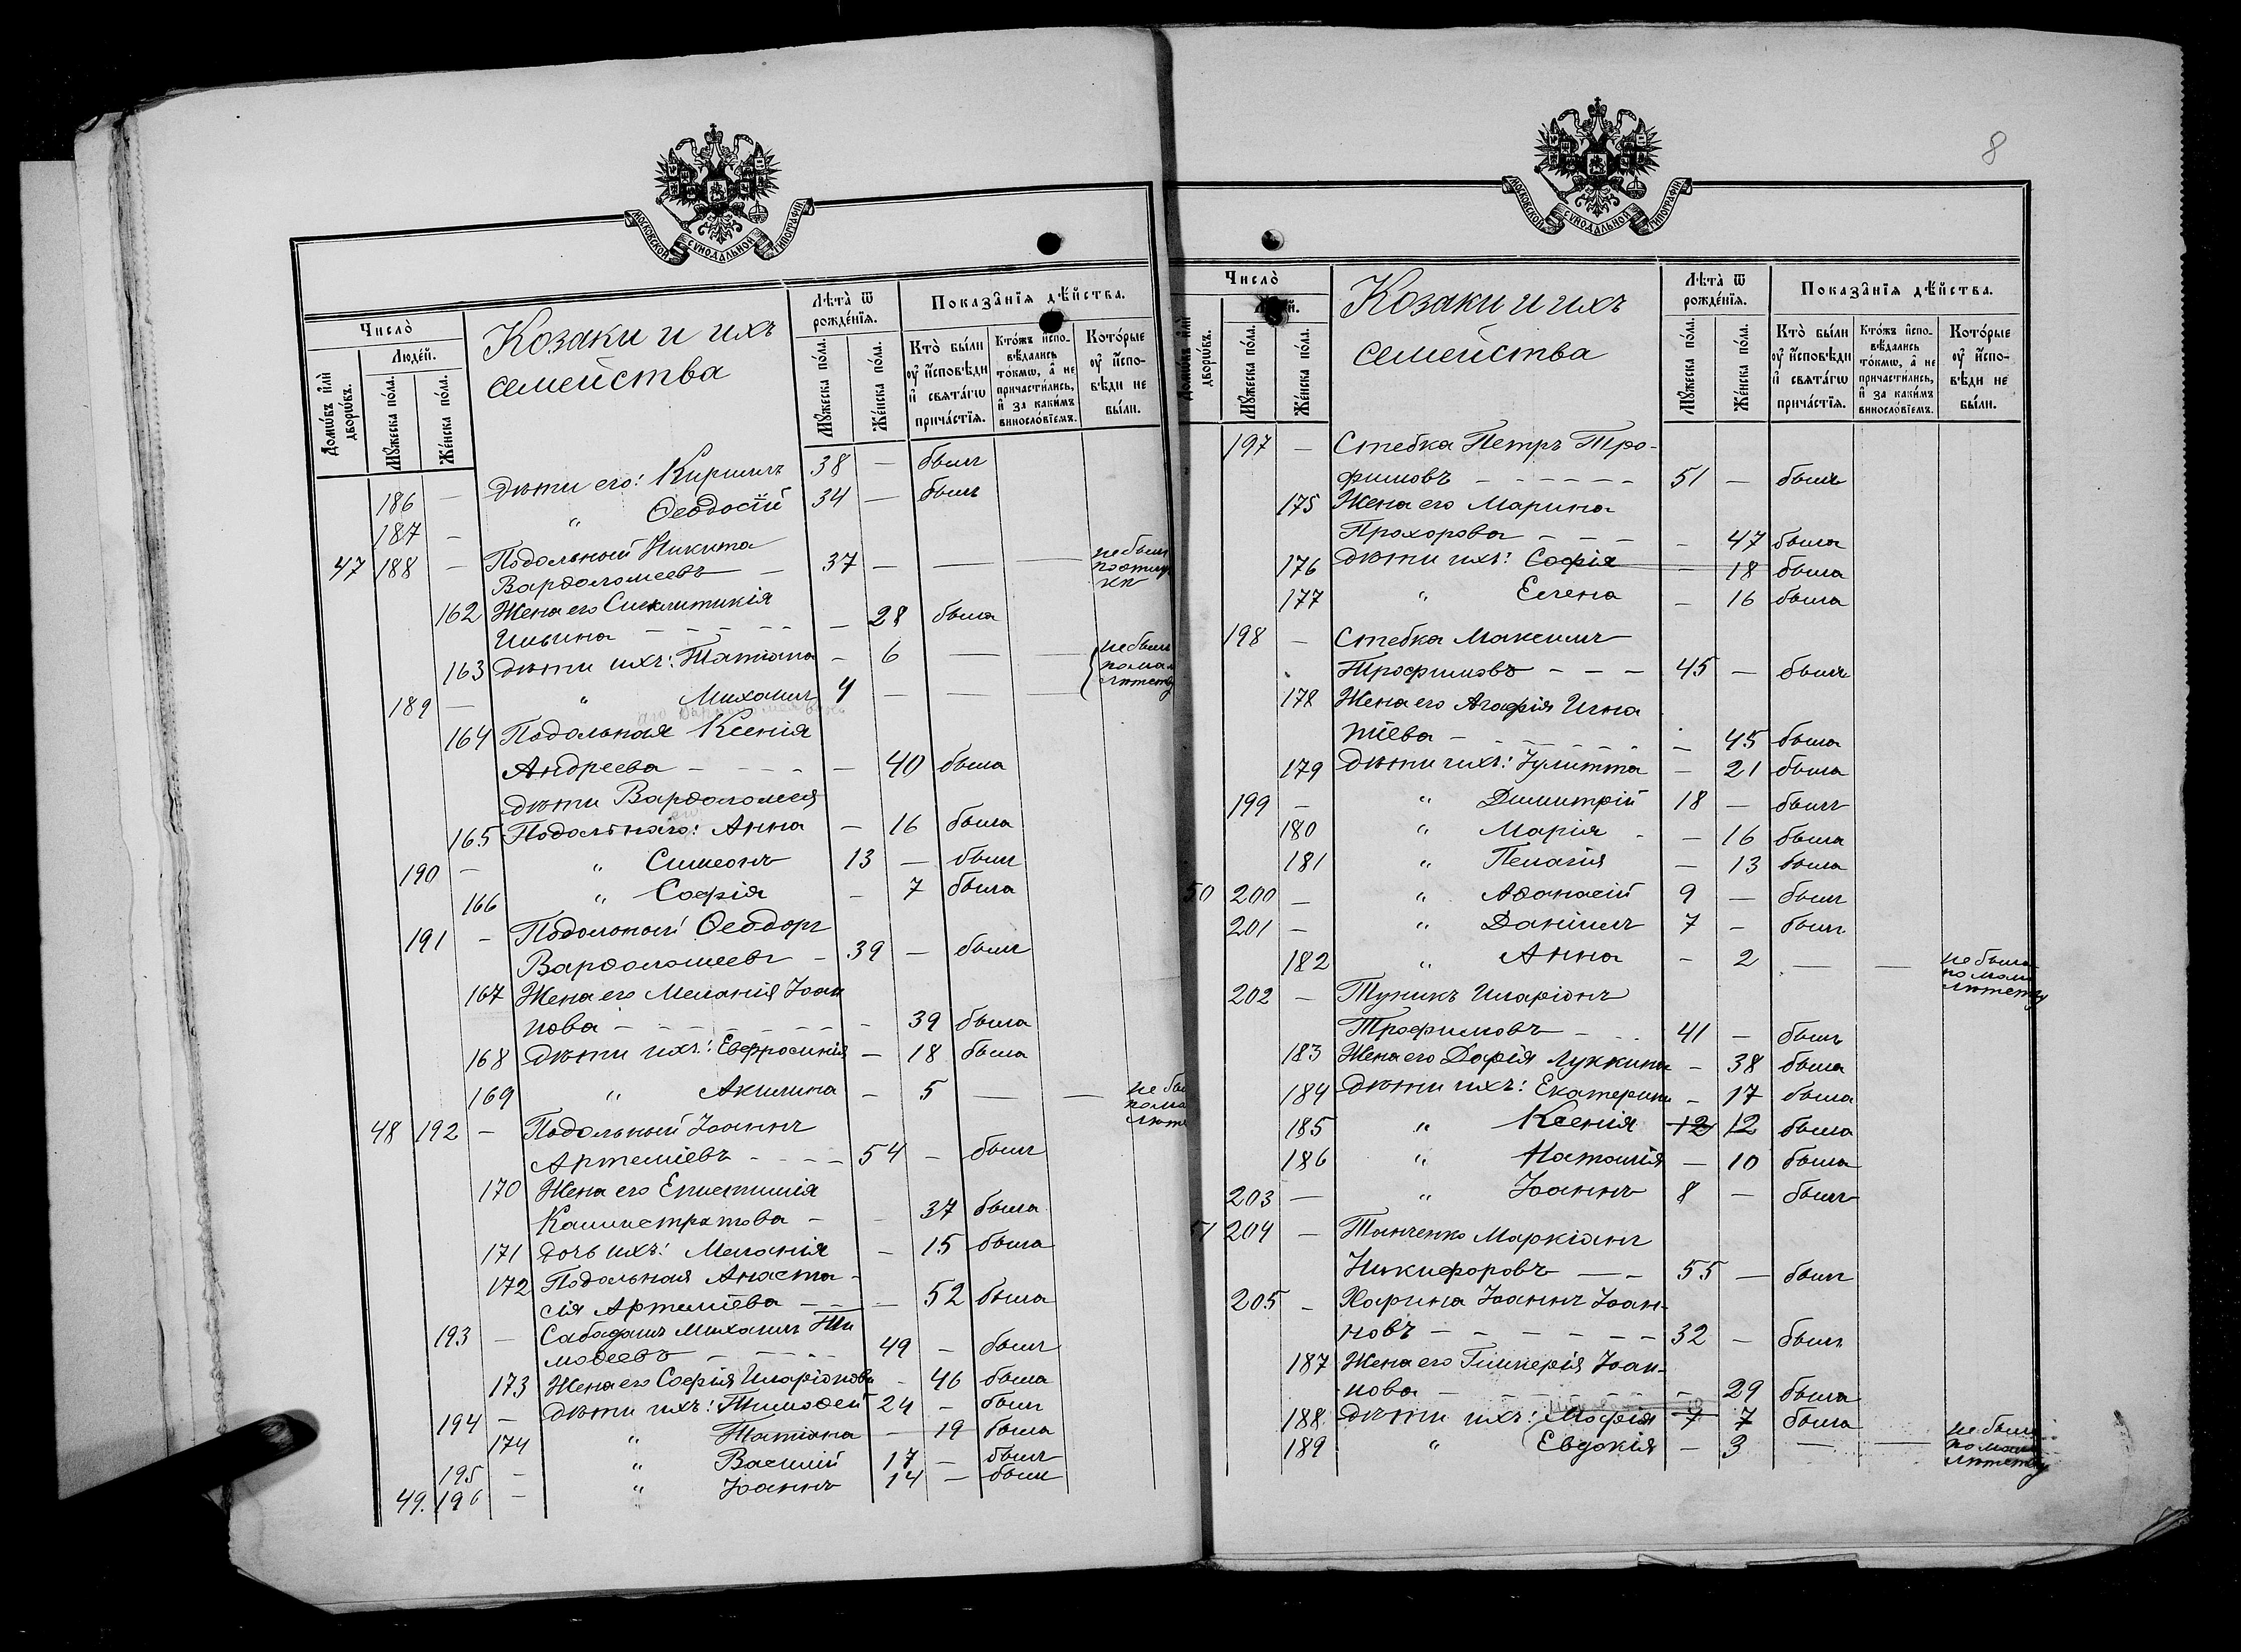 МОСКОВСКОЙ СѴНОДАЛЬНОЙ ТИПОГРАФІИ
Число̀
Домѡ́въ и҆лѝ дворѡ́въ.
Люде́й.
Мꙋ́жеска по́ла.
Же́нска по́ла.
Козаки и ихъ
семейства
Лѣта̀ ѿ рожде́нїѧ.
Мꙋ́жеска по́ла.
Же́нска по́ла.
Показа̑нїѧ дѣ́йства.
Кто̀ бы́ли ᲂу҆ и҆́сповѣди и҆ свѧта́гѡ прича́стїѧ.
Кто́жъ и҆сповѣ́дались то́кмѡ, а҆ не причасти́лись, и҆ за каки́мъ виносло́вїемъ.
Кото́рые ᲂу҆ и҆́сповѣди не бы́ли.
186 — Дѣти его: Кириллъ 38 — былъ
187 — " Ѳеодосій 34 — былъ
47 188 — Подольный Никита
Варѳоломеевъ — 37 — — — не былъ по отлучкѣ
162 Жена его Синклитикія
Ильина — — — — — 28 была
163 Дѣти ихъ: Татіана — 6 — — не были по малолѣтству
189 — " Михаилъ 4 — — —
164 Подольная Ксенія
Андреева — — — — — 40 была
Дѣти Варѳоломея
165 Подольнаго: Анна — 16 была
190 — " Симеонъ 13 — былъ
166 " Софія — 7 была
191 — Подольный Ѳеодоръ
Варѳоломеевъ — 39 — былъ
167 Жена его Меланія Іоан
нова — — — — — — 39 была
168 Дѣти ихъ: Евфросинія — 18 была
169 " Акилина — 5 — — не бы
по мало
лѣтс
48 192 — Подольный Іоаннъ
Артеміевъ — — — — 54 — былъ
170 Жена его Епистимія
Каллистратова — — 37 была
171 Дочь ихъ: Меланія — 15 была
172 Подольная Анаста-
сія Артеміева — — — 52 была
193 — Сабадашъ Михаилъ Ти
моѳеевъ — — — — 49 — былъ
173 Жена его Софія Иларіонова — 46 была
194 — Дѣти ихъ: Тимоѳей 24 — былъ
174 " Татіана — 19 была
195 — " Василій 17 — былъ
49. 196 — " Іоаннъ 14 — былъ
8
МОСКОВСКОЙ СѴНОДАЛЬНОЙ ТИПОГРАФІИ
Число̀
Домѡ́въ и҆лѝ дворѡ́въ.
Мꙋ́жеска по́ла.
Же́нска по́ла.
Козаки и ихъ
семейства
Лѣта̀ ѿ рожде́нїѧ.
Мꙋ́жеска по́ла.
Же́нска по́ла.
Показа̑нїѧ дѣ́йства.
Кто̀ бы́ли ᲂу҆ и҆́сповѣди и҆ свѧта́гѡ прича́стїѧ.
Кто́жъ и҆сповѣ́дались то́кмѡ, а҆ не причасти́лись, и҆ за каки́мъ виносло́вїемъ.
Кото́рые ᲂу҆ и҆́сповѣди не бы́ли.
197 — Стебка Петръ Тро-
фимовъ — — — — — — 51 — былъ
175 Жена его Марина
Прохорова — — — — 47 была
176 Дѣти ихъ: Софія — 18 была
177 " Елена — 16 была
198 — Стебка Максимъ
Трофимовъ — — — 45 — былъ
178 Жена его Агафія Игна
тіева — — — — — — — 45 была
179 Дѣти ихъ: Іулитта — 21 была
199 — " Димитрій 18 — былъ
180 " Марія — — 16 была
181 " Пелагія — 13 была
50 200 — " Аѳанасій 9 — былъ
201 — " Даніилъ 7 — былъ
182 " Анна — 2 — — не была
по мало
лѣтству
202 — Тупикъ Иларіонъ
Трофимовъ — 41 — былъ
183 Жена его Дарія Луккина — 38 была
184 Дѣти ихъ: Екатерина — 17 была
185 " Ксенія 12 12 была
186 " Наталія — 10 была
203 — " Іоаннъ 8 — былъ
51 204 — Танченко Маркіанъ
Никифоровъ — — 55 — былъ
205 — Харина Іоаннъ Іоан-
новъ — — — — — — 32 — былъ
187 Жена его Гликерія Іоан-
нова — — — — — — 29 была
188 Дѣти ихъ: Марія 7 7 была
189 " Евдокія — 3 — — не была
по мало
лѣтству